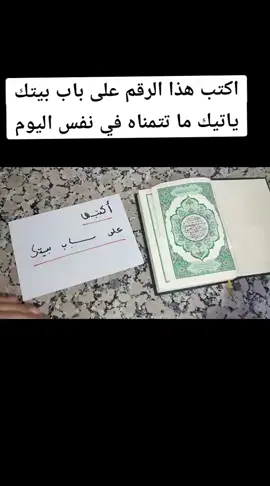 اكتب هذا الرقم على باب بيتك
ياتيك ما تتمناه في نفس اليوم
أكتبها
على باب بيتك